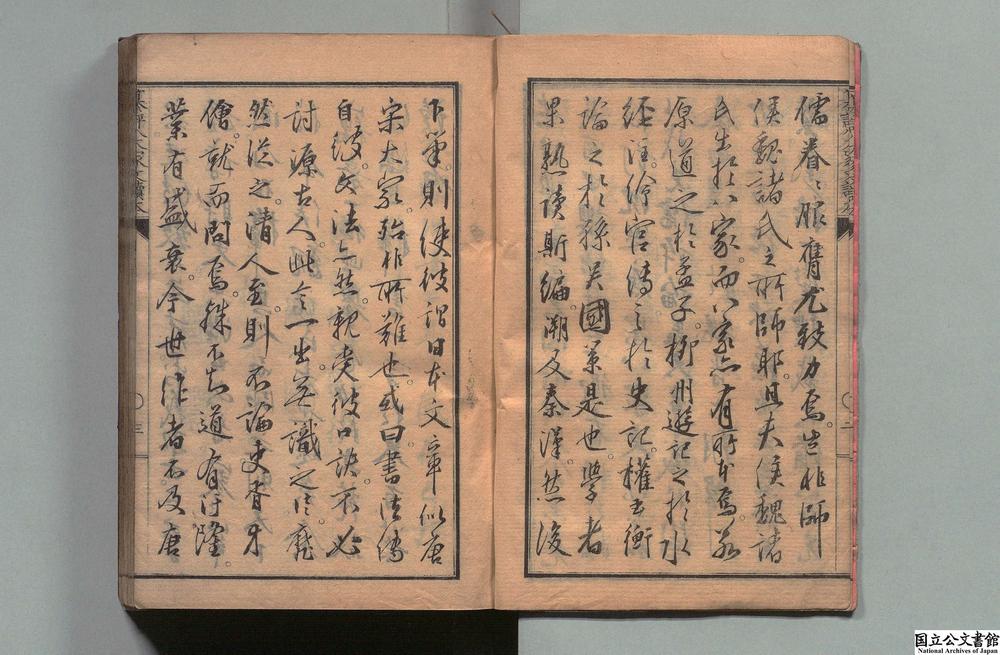 儒眷〻服膺尤致力焉豈非師
侯魏諸氏之所師耶且夫侯魏諸
氏出於八家而八家亦有所本焉若
原道之於孟子柳州遊記之於水
經注徐宮傳之於史記權書衡
論之於孫吳國策是也學者
果熟讀斯編溯及秦漢然後
下筆則使彼謂日本文章似唐
宋大家殆非所難也或曰書法傳
自彼文法亦然親受彼口訣不必
討源古人此言一出無識之徒靡
然從之清人至則不論史胥牙
儈就而問焉殊不知道有汙隆
業有盛衰今世作者不及唐
三
二
国立公文書館
National Archives of Japan